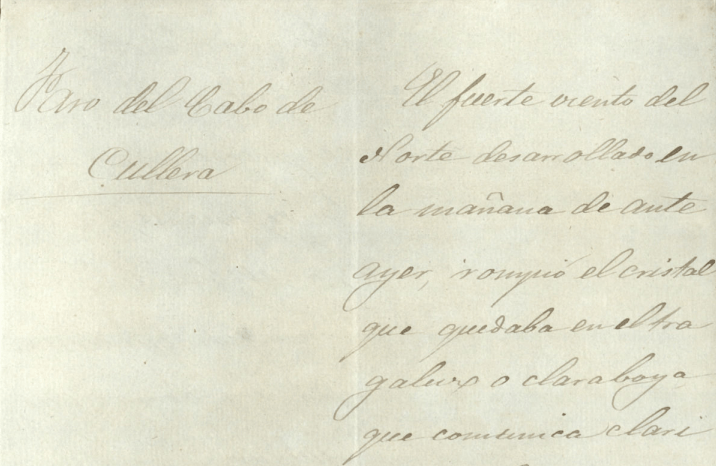 Faro del Cabo de
Cullera
El fuerte viento del
Norte desarrollado en
la mañana de ante
ayer, rompió el cristal
que quedaba en el tra
galux o claraboya
que comunica clari